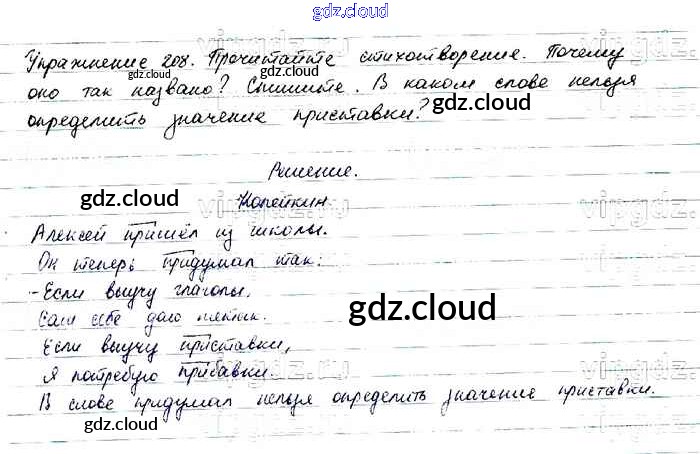 gdz.cloud
Упражнение 208. Прочитайте стихотворение. Почему
оно так названо? Спишите. В каком слове нельзя
определить значение приставки?
gdz.cloud
gdz.cloud
gdz.cloud
Решение.
Копейкин.
gdz.cloud
vipgdz.ru
vipgdz.ru
Алексей пришёл из школы.
Он теперь придумал так:
-Если выучу глаголы,
Сам себе даю пятак.
Если выучу приставки,
Я потребую прибавки.
gdz.cloud
В слове придумал нельзя определить значение приставки.